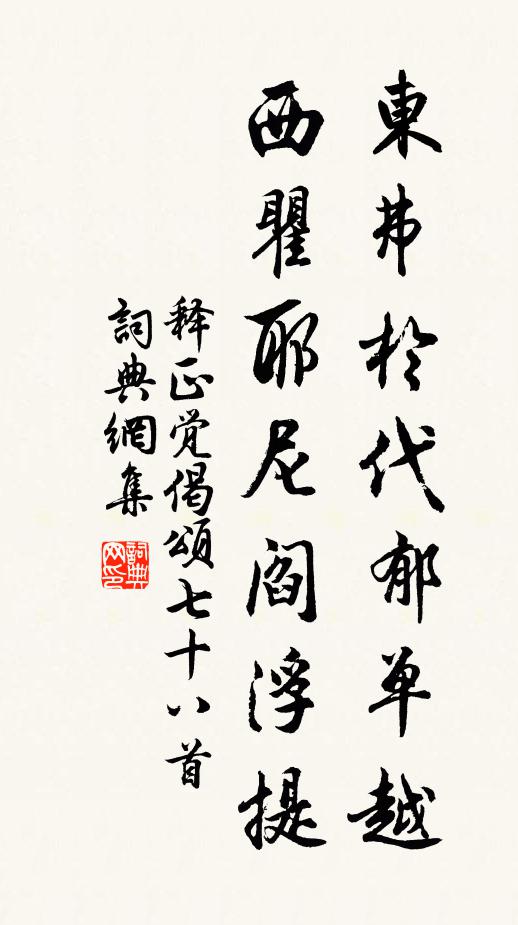 東弗於代郁单越
西瞿耶尼阎浮提
释正觉偈颂七十八首
詞典網集
詞典网印